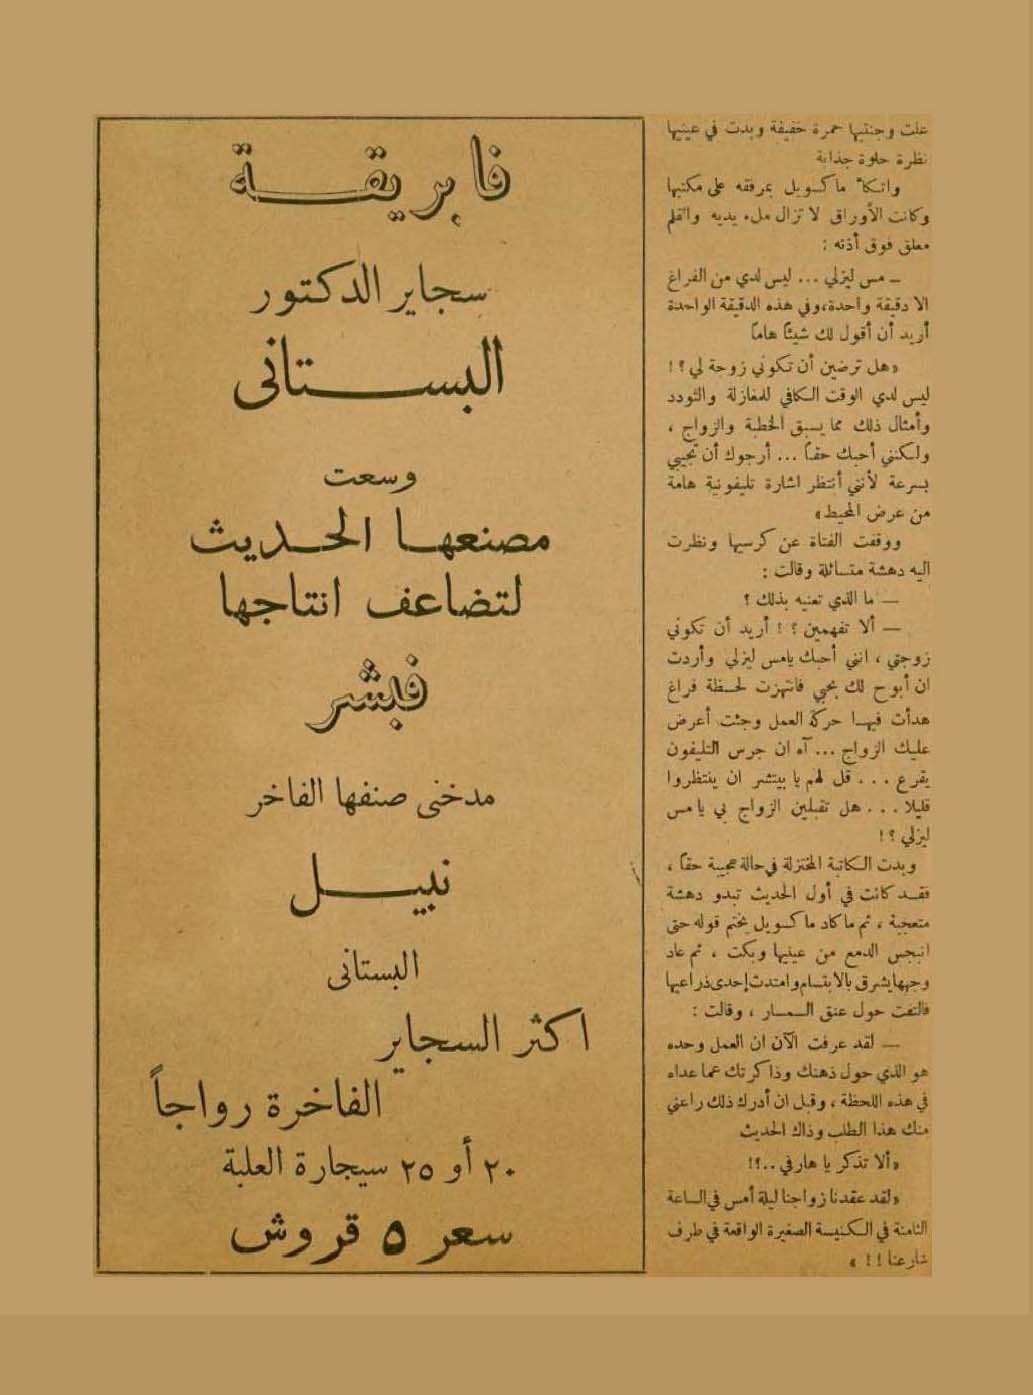 علت وجنتيها حمرة خفيفة وبدت في عينيها
نظرة حلوة جذابة
واتكأ ماكسويل بمرفقه على مكتبها
وكانت الأوراق لا تزال ملء يديه والقلم
معلق فوق أذنه :
ـ مس ليزلي ... ليس لدي من الفراغ
الا دقيقة واحدة، وفي هذه الدقيقة الواحدة
أريد أن أقول لك شيئاً هاماً
«هل ترضين أن تكوني زوجة لي ؟ !
ليس لدي الوقت الكافي للمغازلة والتودد
وأمثال ذلك مما يسبق الخطبة والزواج ،
ولكنني أحبك حقاً ... أرجوك أن تجيبي
بسرعة لأنني أنتظر اشارة تليفونية هامة
من عرض المحيط»
ووقفت الفتاة عن كرسيها ونظرت
اليه دهشة متسائلة وقالت :
— ما الذي تعنيه بذلك ؟
— ألا تفهمين ؟ ! أريد أن تكوني
زوجتي ، انني أحبك يامس ليزلي وأردت
ان أبوح لك بحبي فانتهزت لحظة فراغ
هدأت فيها حركة العمل وجئت أعرض
عليك الزواج ... آه ان جرس التليفون
يقرع ... قل لهم يا بيتشر ان ينتظروا
قليلا ... هل تقبلين الزواج بي يا مس
ليزلي ؟ !
وبدت الكاتبة المختزلة في حالة عجيبة حقاً ،
فقد كانت في أول الحديث تبدو دهشة
متعجبة ، ثم ماكاد ماكسويل يختم قوله حتى
انبجس الدمع من عينيها وبكت ، ثم عاد
وجهها يشرق بالابتسام وامتدت إحدى ذراعيها
فالتفت حول عنق السمسار ، وقالت :
— لقد عرفت الآن ان العمل وحده
هو الذي حول ذهنك وذاكرتك عما عداه
في هذه اللحظة ، وقبل ان أدرك ذلك راعني
منك هذا الطلب وذاك الحديث
«ألا تذكر يا هارفي ..؟!
«لقد عقدنا زواجنا ليلة أمس في الساعة
الثامنة في الكنيسة الصغيرة الواقعة في طرف
شارعنا !! »
فابريقة
سجاير الدكتور
البستانى
وسعت
مصنعها الحديث
لتضاعف انتاجها
فبشر
مدخنى صنفها الفاخر
نبيل
البستانى
اكثر السجاير
الفاخرة رواجاً
٢٠ أو ٢٥ سيجارة العلبة
سعر ٥ قروش